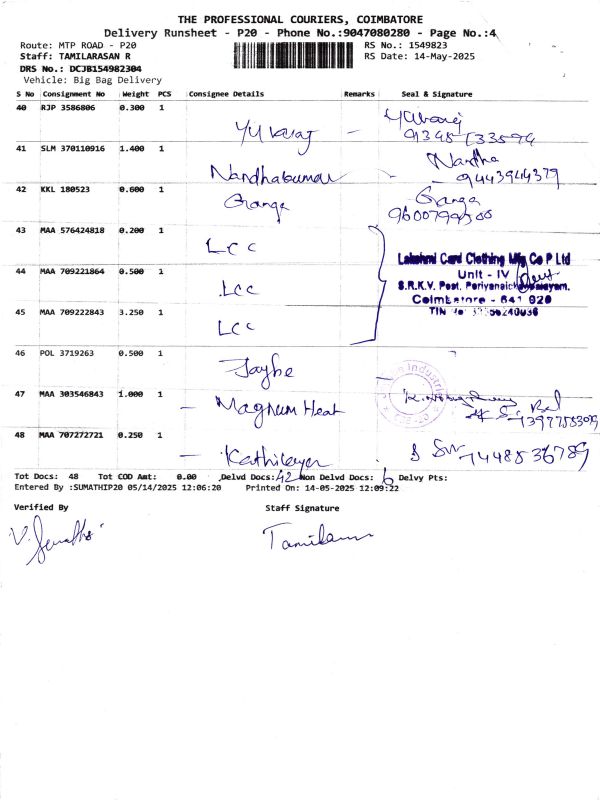 THE PROFESSIONAL COURIERS, COIMBATORE
Delivery Runsheet - P20 - Phone No.:9047080280 - Page No.:4
Route: MTP ROAD - P20 RS No.: 1549823
Staff: TAMILARASAN R RS Date: 14-May-2025
DRS No.: DCJB154982304
Vehicle: Big Bag Delivery
S No Consignment No Weight PCS Consignee Details Remarks Seal & Signature
40 RJP 3586806 0.300 1 Yuvaraj
41 SLM 370110916 1.400 1 Nandhakumar Nandha
42 KKL 180523 0.600 1 Ganga Ganga
43 MAA 576424818 0.200 1 LCC
Lakshmi Card Clothing Mfg Co P Ltd
44 MAA 709221864 0.500 1 LCC Unit - IV
S.R.K.V. Post, Periyanaickenpalayam,
Coimbatore - 641 020
45 MAA 709222843 3.250 1 LCC TIN No
46 POL 3719263 0.500 1
47 MAA 303546843 1.000 1 - Magnum Heat
48 MAA 707272721 0.250 1 - 7448536789
Tot Docs: 48 Tot COD Amt: 0.00 Delvd Docs: 42 Non Delvd Docs: 6 Delvy Pts:
Entered By :SUMATHIP20 05/14/2025 12:06:20 Printed On: 14-05-2025 12:09:22
Verified By Staff Signature